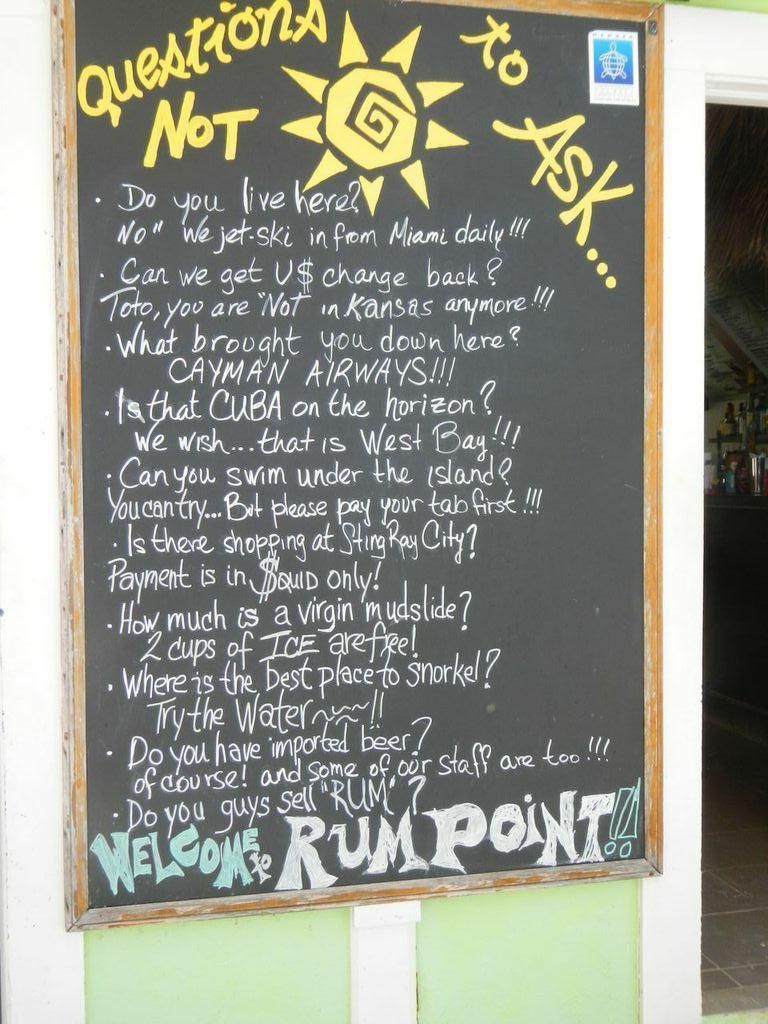 Questions
Not
to
Ask...
• Do you live here?
No" We jet-ski in from Miami daily!!!
• Can we get U$ change back?
Toto, you are "Not" in Kansas anymore!!!
• What brought you down here?
CAYMAN AIRWAYS!!!
• Is that CUBA on the horizon?
We wish... that is West Bay!!!
• Can you swim under the island?
You can try... But please pay your tab first!!!
• Is there shopping at Sting Ray City?
Payment is in $QUID only!
• How much is a virgin mudslide?
2 cups of ICE are free!
• Where is the best place to snorkel?
Try the Water~~~!!
• Do you have imported beer?
of course! and some of our staff are too!!!
• Do you guys sell "RUM"?
WELCOME to RUM POINT!!